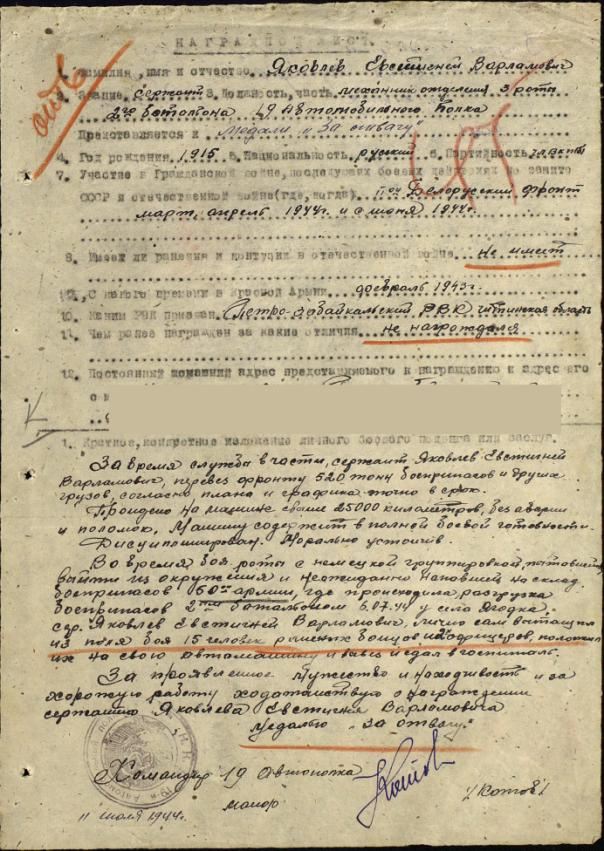 НАГРАДНОЙ ЛИСТ.
1. Фамилия, имя и отчество Яковлев Евстигней Варламович
2. Звание сержант 3. Должность, часть механик отделения 3 роты
2го батальона 19 Автомобильного полка
Представляется к медали "За отвагу"
4. Год рождения 1915 5. Национальность русский 6. Партийность чл. ВКП(б)
7. Участие в Гражданской войне, последующих боевых действиях по защите
СССР и отечественной войне (где, когда) Белорусский фронт
март, апрель 1944г и с июня 1944г.
8. Имеет ли ранения и контузии в отечественной войне не имеет
9. С какого времени в Красной Армии февраль 1943г.
10. Каким РВК призван Петро-Забайкальский РВК Читинская область
11. Чем ранее награжден за какие отличия не награждался
12. Постоянный домашний адрес представляемого к награждению и адрес его
1. Краткое, конкретное изложение личного боевого подвига или заслуг.
За время службы в части, сержант Яковлев Евстигней
Варламович, перевез фронту 520 тонн боеприпасов и других
грузов, согласно плана и графика точно в срок.
Пройдено на машине свыше 25000 километров, без аварии
и поломок. Машину содержит в полной боевой готовности.
Дисциплинирован. Морально устойчив.
Во время боя роты с немецкой группировкой, пытавшейся
выйти из окружения и неожиданно напавшей на склад
боеприпасов 50й армии, где происходила разгрузка
боеприпасов 2ым батальоном 5.07.44 у села Ягодка.
сер. Яковлев Евстигней Варламович, лично сам вытащил
из поля боя 15 человек раненых бойцов и офицеров, положил
их на свою автомашину и вывез и сдал в госпиталь.
За проявленное мужество и находчивость и за
хорошую работу ходатайствую о награждении
сержанта Яковлева Евстигнея Варламовича
медалью "За отвагу".
Командир 19 автополка
майор /Котов/
11 июля 1944г.